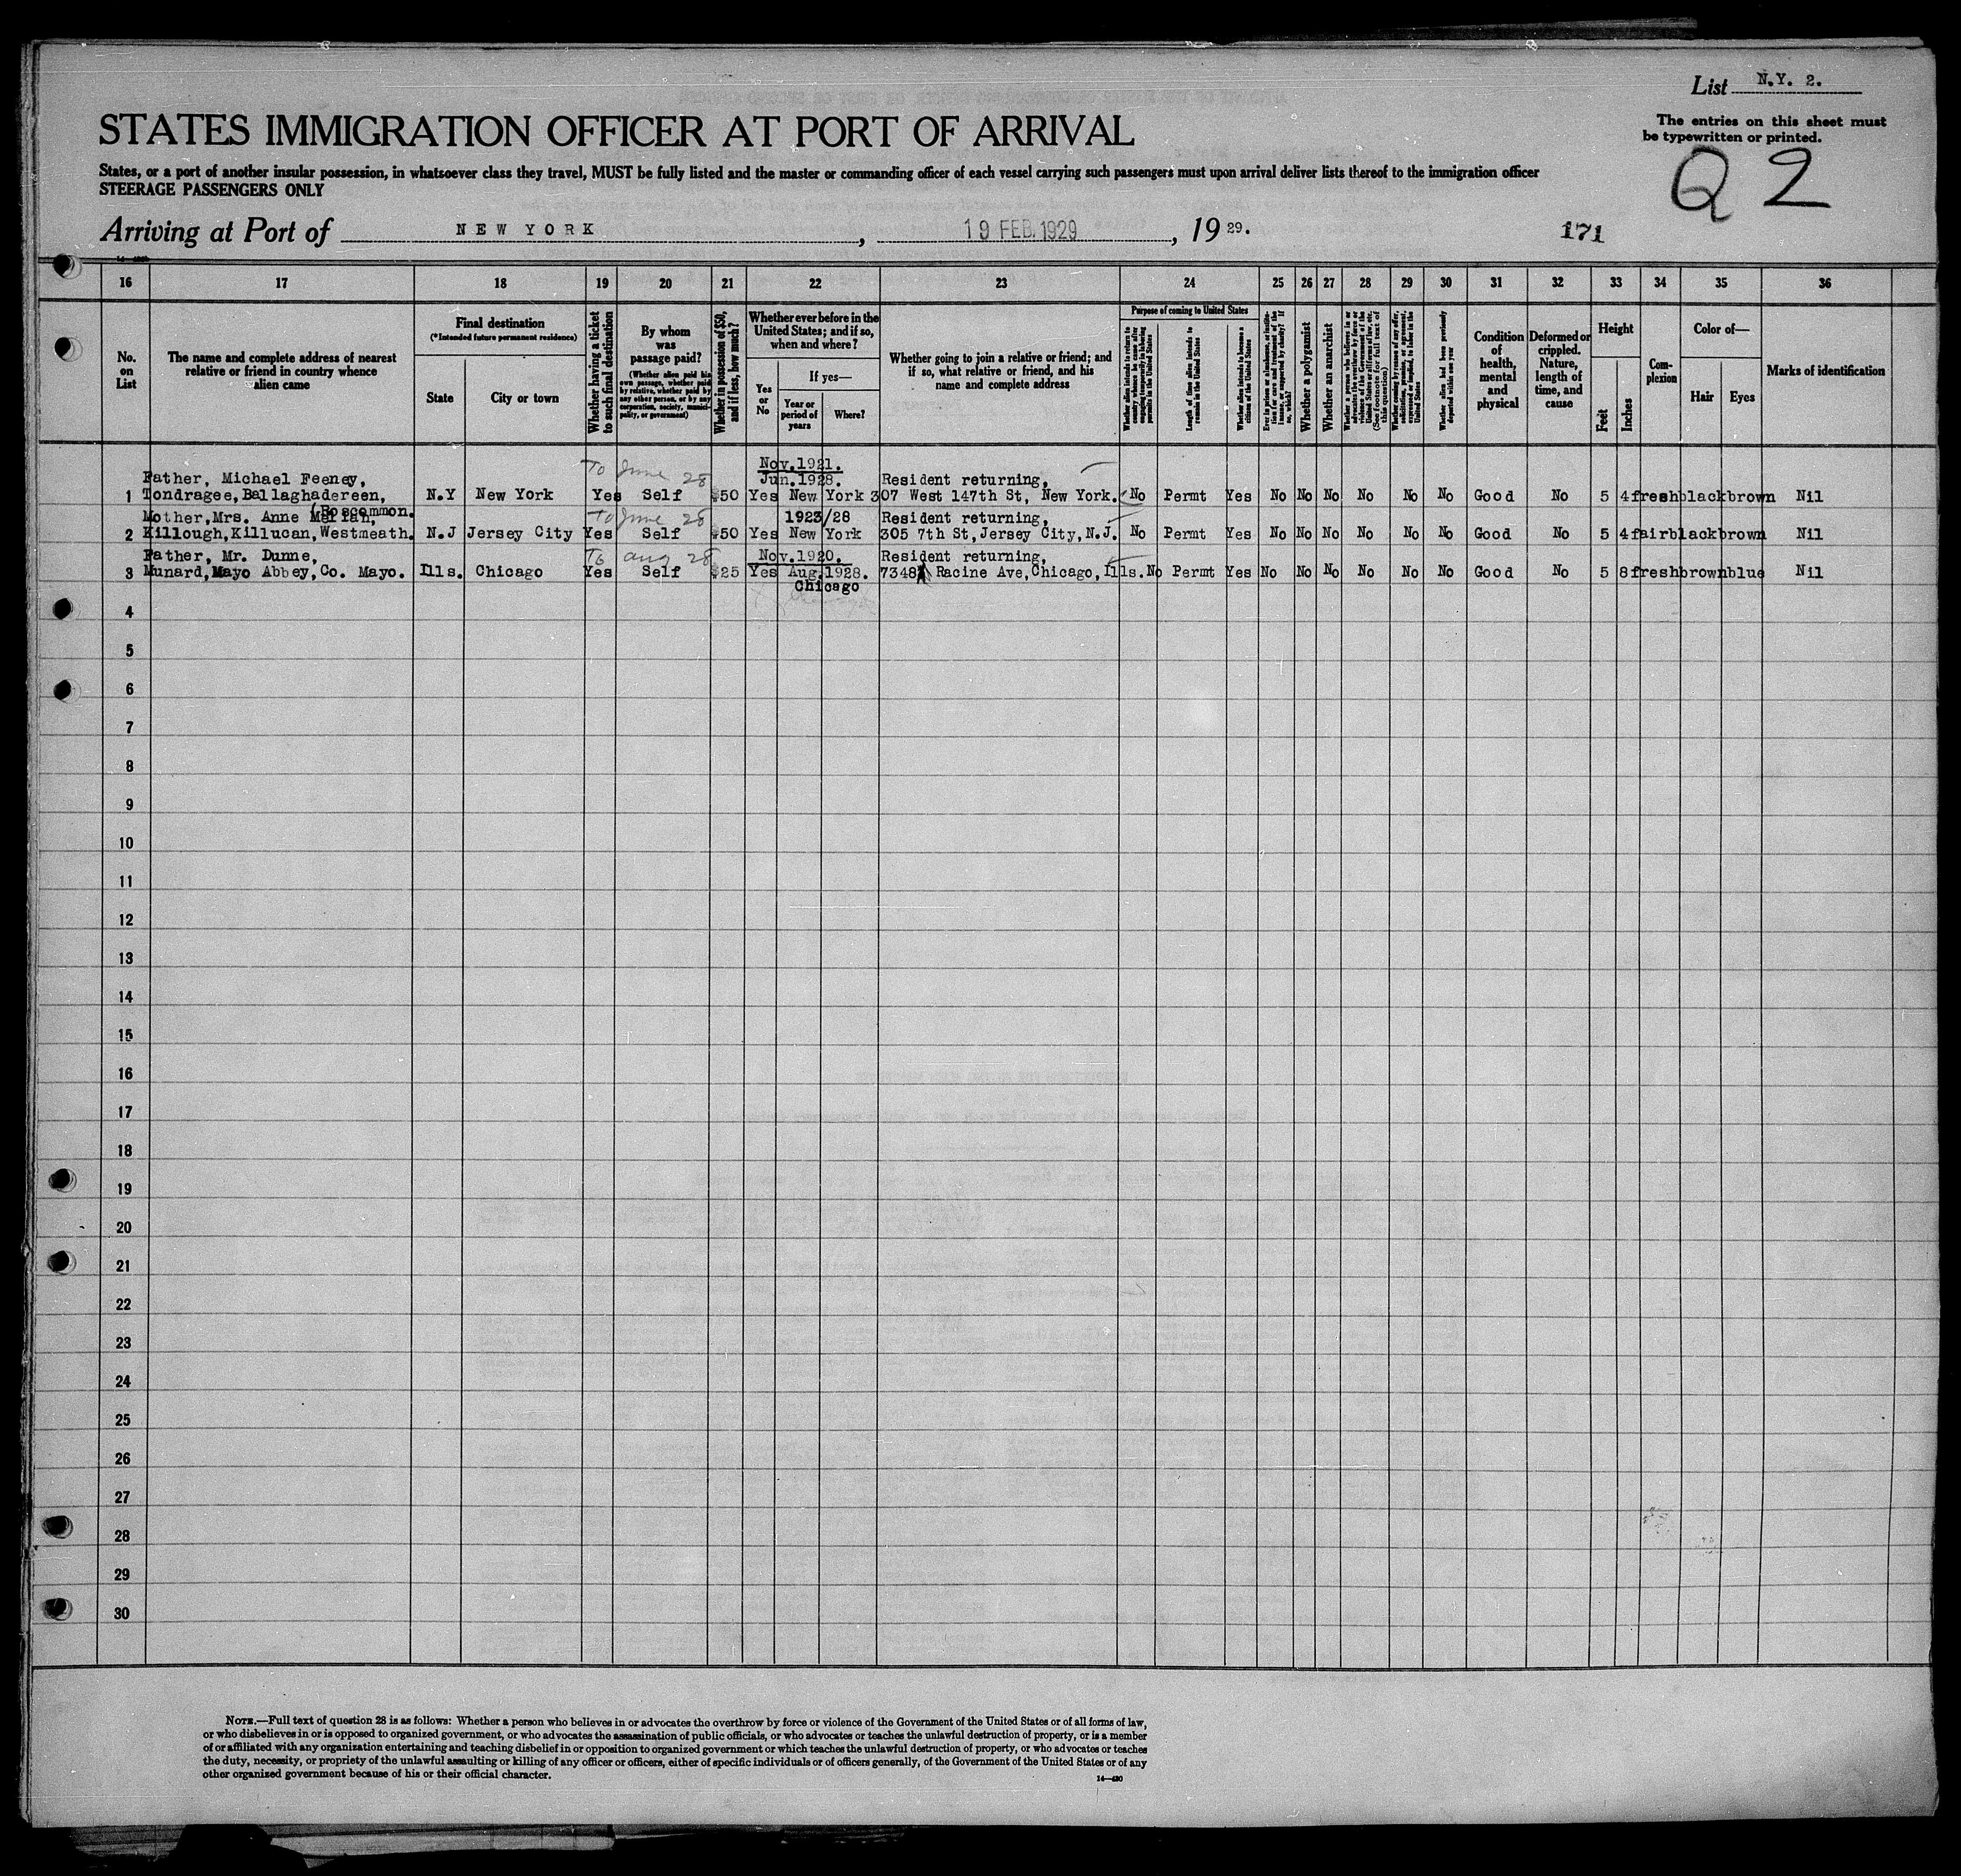 List N.Y. 2.
The entries on this sheet must
be typewritten or printed.
Q 2
STATES IMMIGRATION OFFICER AT PORT OF ARRIVAL
States, or a port of another insular possession, in whatsoever class they travel, MUST be fully listed and the master or commanding officer of each vessel carrying such passengers must upon arrival deliver lists thereof to the immigration officer
STEERAGE PASSENGERS ONLY
Arriving at Port of NEW YORK, 19 FEB. 1929, 19 29.
171
16 17 18 19 20 21 22 23 24 25 26 27 28 29 30 31 32 33 34 35 36
No. on List
The name and complete address of nearest
relative or friend in country whence
alien came
Final destination
(*Intended future permanent residence)
State
City or town
Whether having a ticket
to such final destination
By whom
was
passage paid?
(Whether alien paid his
own passage, whether paid
by relative, whether paid by
any other person, or by any
corporation, society, munici-
pality, or government)
Whether in possession of $50,
and if less, how much?
Whether ever before in the
United States; and if so,
when and where?
Yes
or
No
If yes—
Year or
period of
years
Where?
Whether going to join a relative or friend; and
if so, what relative or friend, and his
name and complete address
Purpose of coming to United States
Length of time alien intends to
remain in the United States
Whether alien intends to become a
citizen of the United States
Whether a polygamist
Whether an anarchist
Whether alien had been previously
deported within one year
Condition
of
health,
mental
and
physical
Deformed or
crippled.
Nature,
length of
time, and
cause
Height
Feet
Inches
Com-
plexion
Color of—
Hair
Eyes
Marks of identification
To June 28 Nov.1921.
Father, Michael Feeney, Jun.1928. Resident returning,
1 Tondragee, Ballaghadereen, N.Y New York Yes Self $50 Yes New York 307 West 147th St, New York. No Permt Yes No No No No No No Good No 5 4 fresh black brown Nil
(Roscommon.
Mother, Mrs. Anne To June 28 1923/28 Resident returning,
2 Killough, Killucan, Westmeath. N.J Jersey City Yes Self $50 Yes New York 305 7th St, Jersey City, N.J. No Permt Yes No No No No No No Good No 5 4 fair black brown Nil
Father, Mr. Dunne, To aug 28 Nov.1920. Resident returning,
3 Munard, Mayo Abbey, Co. Mayo. Ills. Chicago Yes Self $25 Yes Aug.1928. 7348 Racine Ave, Chicago, Ills. No Permt Yes No No No No No No Good No 5 8 fresh brown blue Nil
Chicago
4
5
6
7
8
9
10
11
12
13
14
15
16
17
18
19
20
21
22
23
24
25
26
27
28
29
30
NOTE.—Full text of question 28 is as follows: Whether a person who believes in or advocates the overthrow by force or violence of the Government of the United States or of all forms of law,
or who disbelieves in or is opposed to organized government, or who advocates the assassination of public officials, or who advocates or teaches the unlawful destruction of property, or is a member
of or affiliated with any organization entertaining and teaching disbelief in or opposition to organized government or which teaches the unlawful destruction of property, or who advocates or teaches
the duty, necessity, or propriety of the unlawful assaulting or killing of any officer or officers, either of specific individuals or of officers generally, of the Government of the United States or of any
other organized government because of his or their official character.
14—430